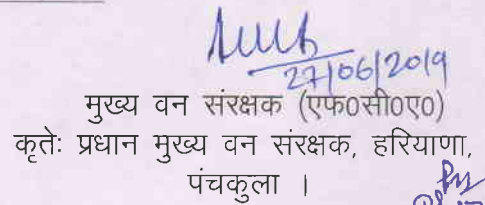 27/06/2019
मुख्य वन संरक्षक (एफ0सी0ए0)
कृतेः प्रधान मुख्य वन संरक्षक, हरियाणा,
पंचकुला ।